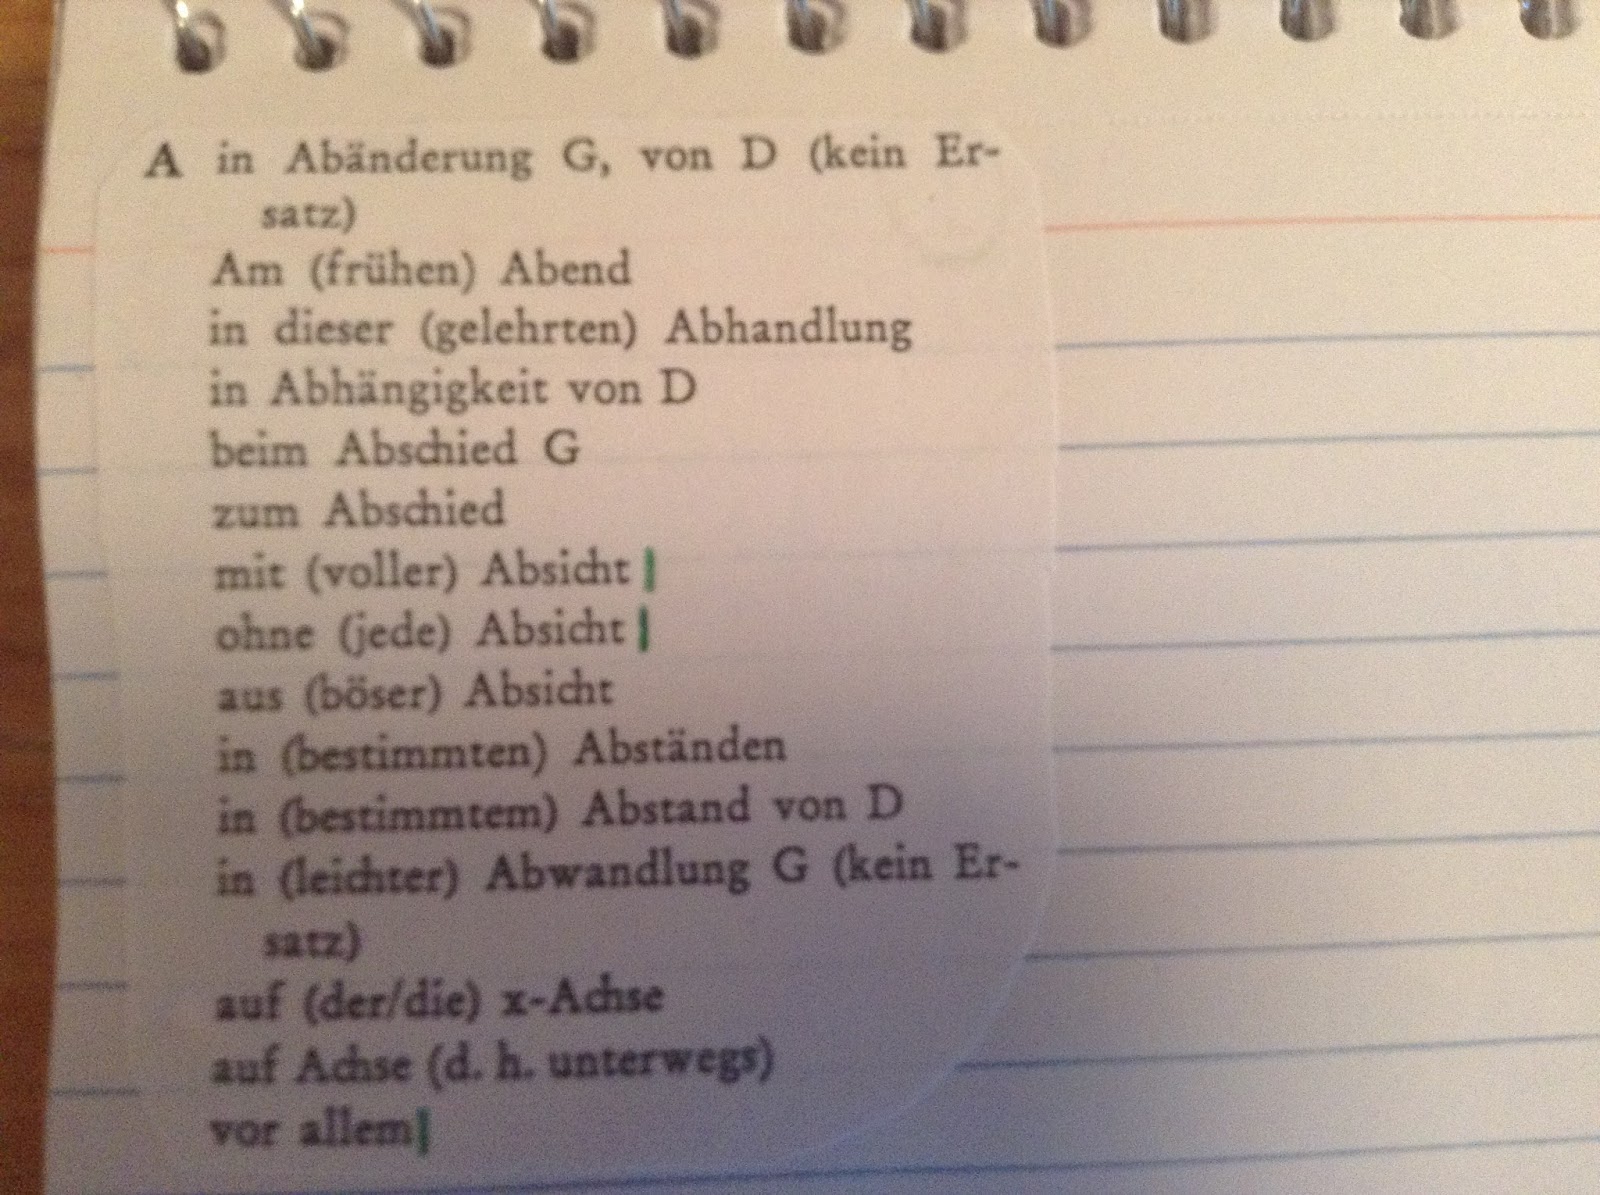 A in Abänderung G, von D (kein Er-
satz)
Am (frühen) Abend
in dieser (gelehrten) Abhandlung
in Abhängigkeit von D
beim Abschied G
zum Abschied
mit (voller) Absicht
ohne (jede) Absicht
aus (böser) Absicht
in (bestimmten) Abständen
in (bestimmtem) Abstand von D
in (leichter) Abwandlung G (kein Er-
satz)
auf (der/die) x-Achse
auf Achse (d. h. unterwegs)
vor allem